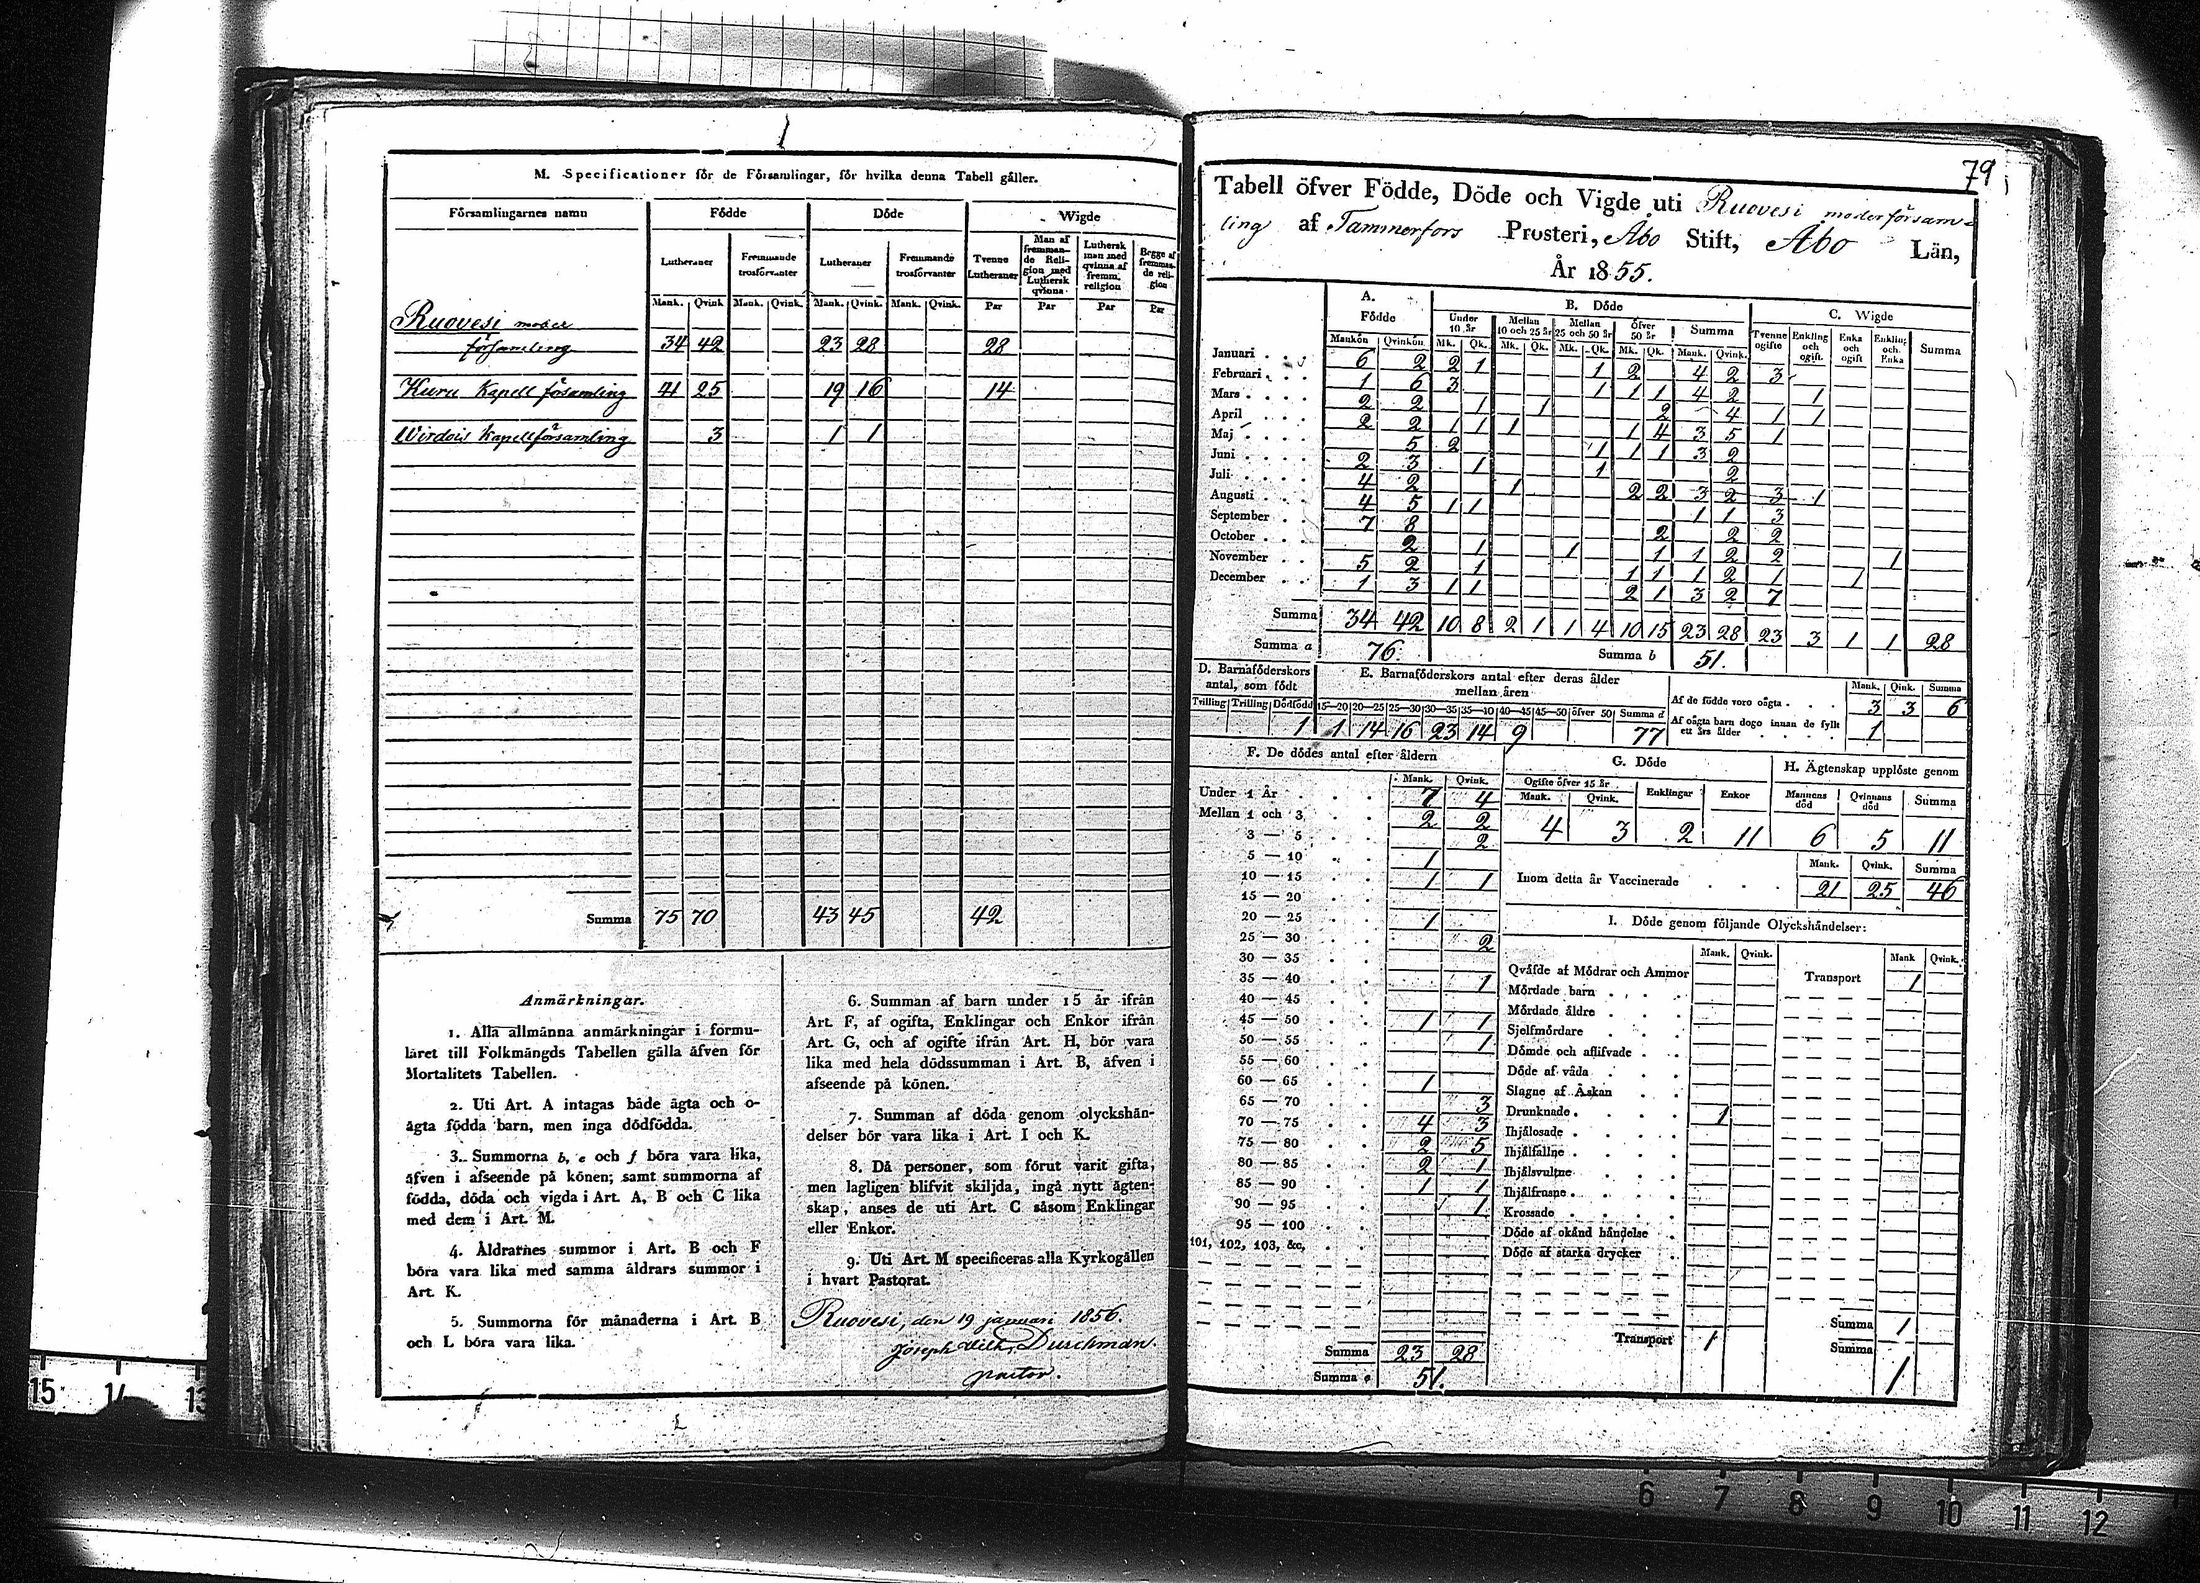 M. Specificationer för de Församlingar, för hvilka denna Tabell gäller.
Församlingarnes namn
Födde
Döde
Wigde
Lutheraner
Fremmande trosförvanter
Lutheraner
Fremmande trosförvanter
Tvenne Lutheraner
Man af fremmande Religion med Luthersk qvinna
Luthersk man med qvinna af fremm. religion
Begge af fremmande religion
Mank. Qvink. Mank. Qvink. Mank. Qvink. Mank. Qvink. Par Par Par Par
Ruovesi moder
församling 34 42 23 28 28
Kuru Kapell församling 41 25 19 16 14
Wirdois Kapellförsamling 3 1 1
Summa 75 70 43 45 42
Anmärkningar.
1. Alla allmänna anmärkningar i formu-
läret till Folkmängds Tabellen gälla äfven för
Mortalitets Tabellen.
2. Uti Art. A intagas både ägta och o-
ägta födda barn, men inga dödfödda.
3. Summorna b, e och f böra vara lika,
äfven i afseende på könen; samt summorna af
födda, döda och vigda i Art. A, B och C lika
med dem i Art. M.
4. Åldrarnes summor i Art. B och F
böra vara lika med samma åldrars summor i
Art. K.
5. Summorna för månaderna i Art. B
och L böra vara lika.
6. Summan af barn under 15 år ifrån
Art. F, af ogifta, Enklingar och Enkor ifrån
Art. G, och af ogifte ifrån Art. H, bör vara
lika med hela dödssumman i Art. B, äfven i
afseende på könen.
7. Summan af döda genom olyckshän-
delser bör vara lika i Art. I och K.
8. Då personer, som förut varit gifta,
men lagligen blifvit skiljda, ingå nytt ägten-
skap, anses de uti Art. C såsom Enklingar
eller Enkor.
9. Uti Art. M specificeras alla Kyrkogällen
i hvart Pastorat.
Ruovesi, den 19 januari 1856.
Joseph Wilh. Durchman.
pastor.
79
Tabell öfver Födde, Döde och Vigde uti Ruovesi moderförsam-
ling af Tammerfors Prosteri, Åbo Stift, Åbo Län,
År 1855.
A. Födde
B. Döde
C. Wigde
Under 10 år
Mellan 10 och 25 år
Mellan 25 och 50 år
Öfver 50 år
Summa
Tvenne ogifte
Enkling och ogift.
Enka och ogift
Enkling och Enka
Summa
Mankön Qvinkön Mk. Qk. Mk. Qk. Mk. Qk. Mk. Qk. Mank. Qvink.
Januari 6 2 2 1 1 2 4 2 3
Februari 1 6 3 1 1 1 4 2 1
Mars 2 2 1 1 2 4 1 1
April 2 2 1 1 1 1 4 3 5 1
Maj 5 2 1 1 1 3 2
Juni 2 3 1 1 2
Juli 4 2 1 2 2 3 2 3 1
Augusti 4 5 1 1 1 1 3
September 7 8 2 2 2
October 2 1 1 1 1 2 2 1
November 5 2 1 1 1 1 2 1 1
December 1 3 1 1 2 1 3 2 7
Summa 34 42 10 8 2 1 1 4 10 15 23 28 23 3 1 1 28
Summa a 76.
Summa b 51.
D. Barnaföderskors antal, som födt
Tvilling Trilling Dödfödd
1
E. Barnaföderskors antal efter deras ålder mellan åren
15—20 20—25 25—30 30—35 35—40 40—45 45—50 öfver 50 Summa d
1 14 16 23 14 9 77
Mank. Qink. Summa
Af de födde voro oägta 3 3 6
Af oägta barn dogo innan de fyllt ett års ålder 1
F. De dödes antal efter åldern
Mank. Qvink.
Under 1 År 7 4
Mellan 1 och 3 2 2
3 — 5 2
5 — 10 1
10 — 15 1 1
15 — 20
20 — 25 1
25 — 30 2
30 — 35
35 — 40 1
40 — 45
45 — 50 1 1
50 — 55 1
55 — 60
60 — 65 1
65 — 70 3
70 — 75 4 3
75 — 80 2 5
80 — 85 2 1
85 — 90 1 1
90 — 95 1
95 — 100
101, 102, 103, &c,
Summa 23 28
Summa e 51.
G. Döde
Ogifte öfver 15 år
Mank. Qvink. Enklingar Enkor
4 3 2 11
H. Ägtenskap upplöste genom
Mannens död
Qvinnans död
Summa
6 5 11
Mank. Qvink. Summa
Inom detta år Vaccinerade 21 25 46
I. Döde genom följande Olyckshändelser:
Mank. Qvink. Mank Qvink.
Qväfde af Mödrar och Ammor
Transport 1
Mördade barn
Mördade äldre
Sjelfmördare
Dömde och aflifvade
Döde af våda
Slagne af Åskan
Drunknade 1
Ihjälosade
Ihjälfallne
Ihjälsvultne
Ihjälfrusne
Krossade
Döde af okänd händelse
Döde af starka drycker
Transport 1
Summa 1
Summa 1
15 14 13
6 7 8 9 10 11 12